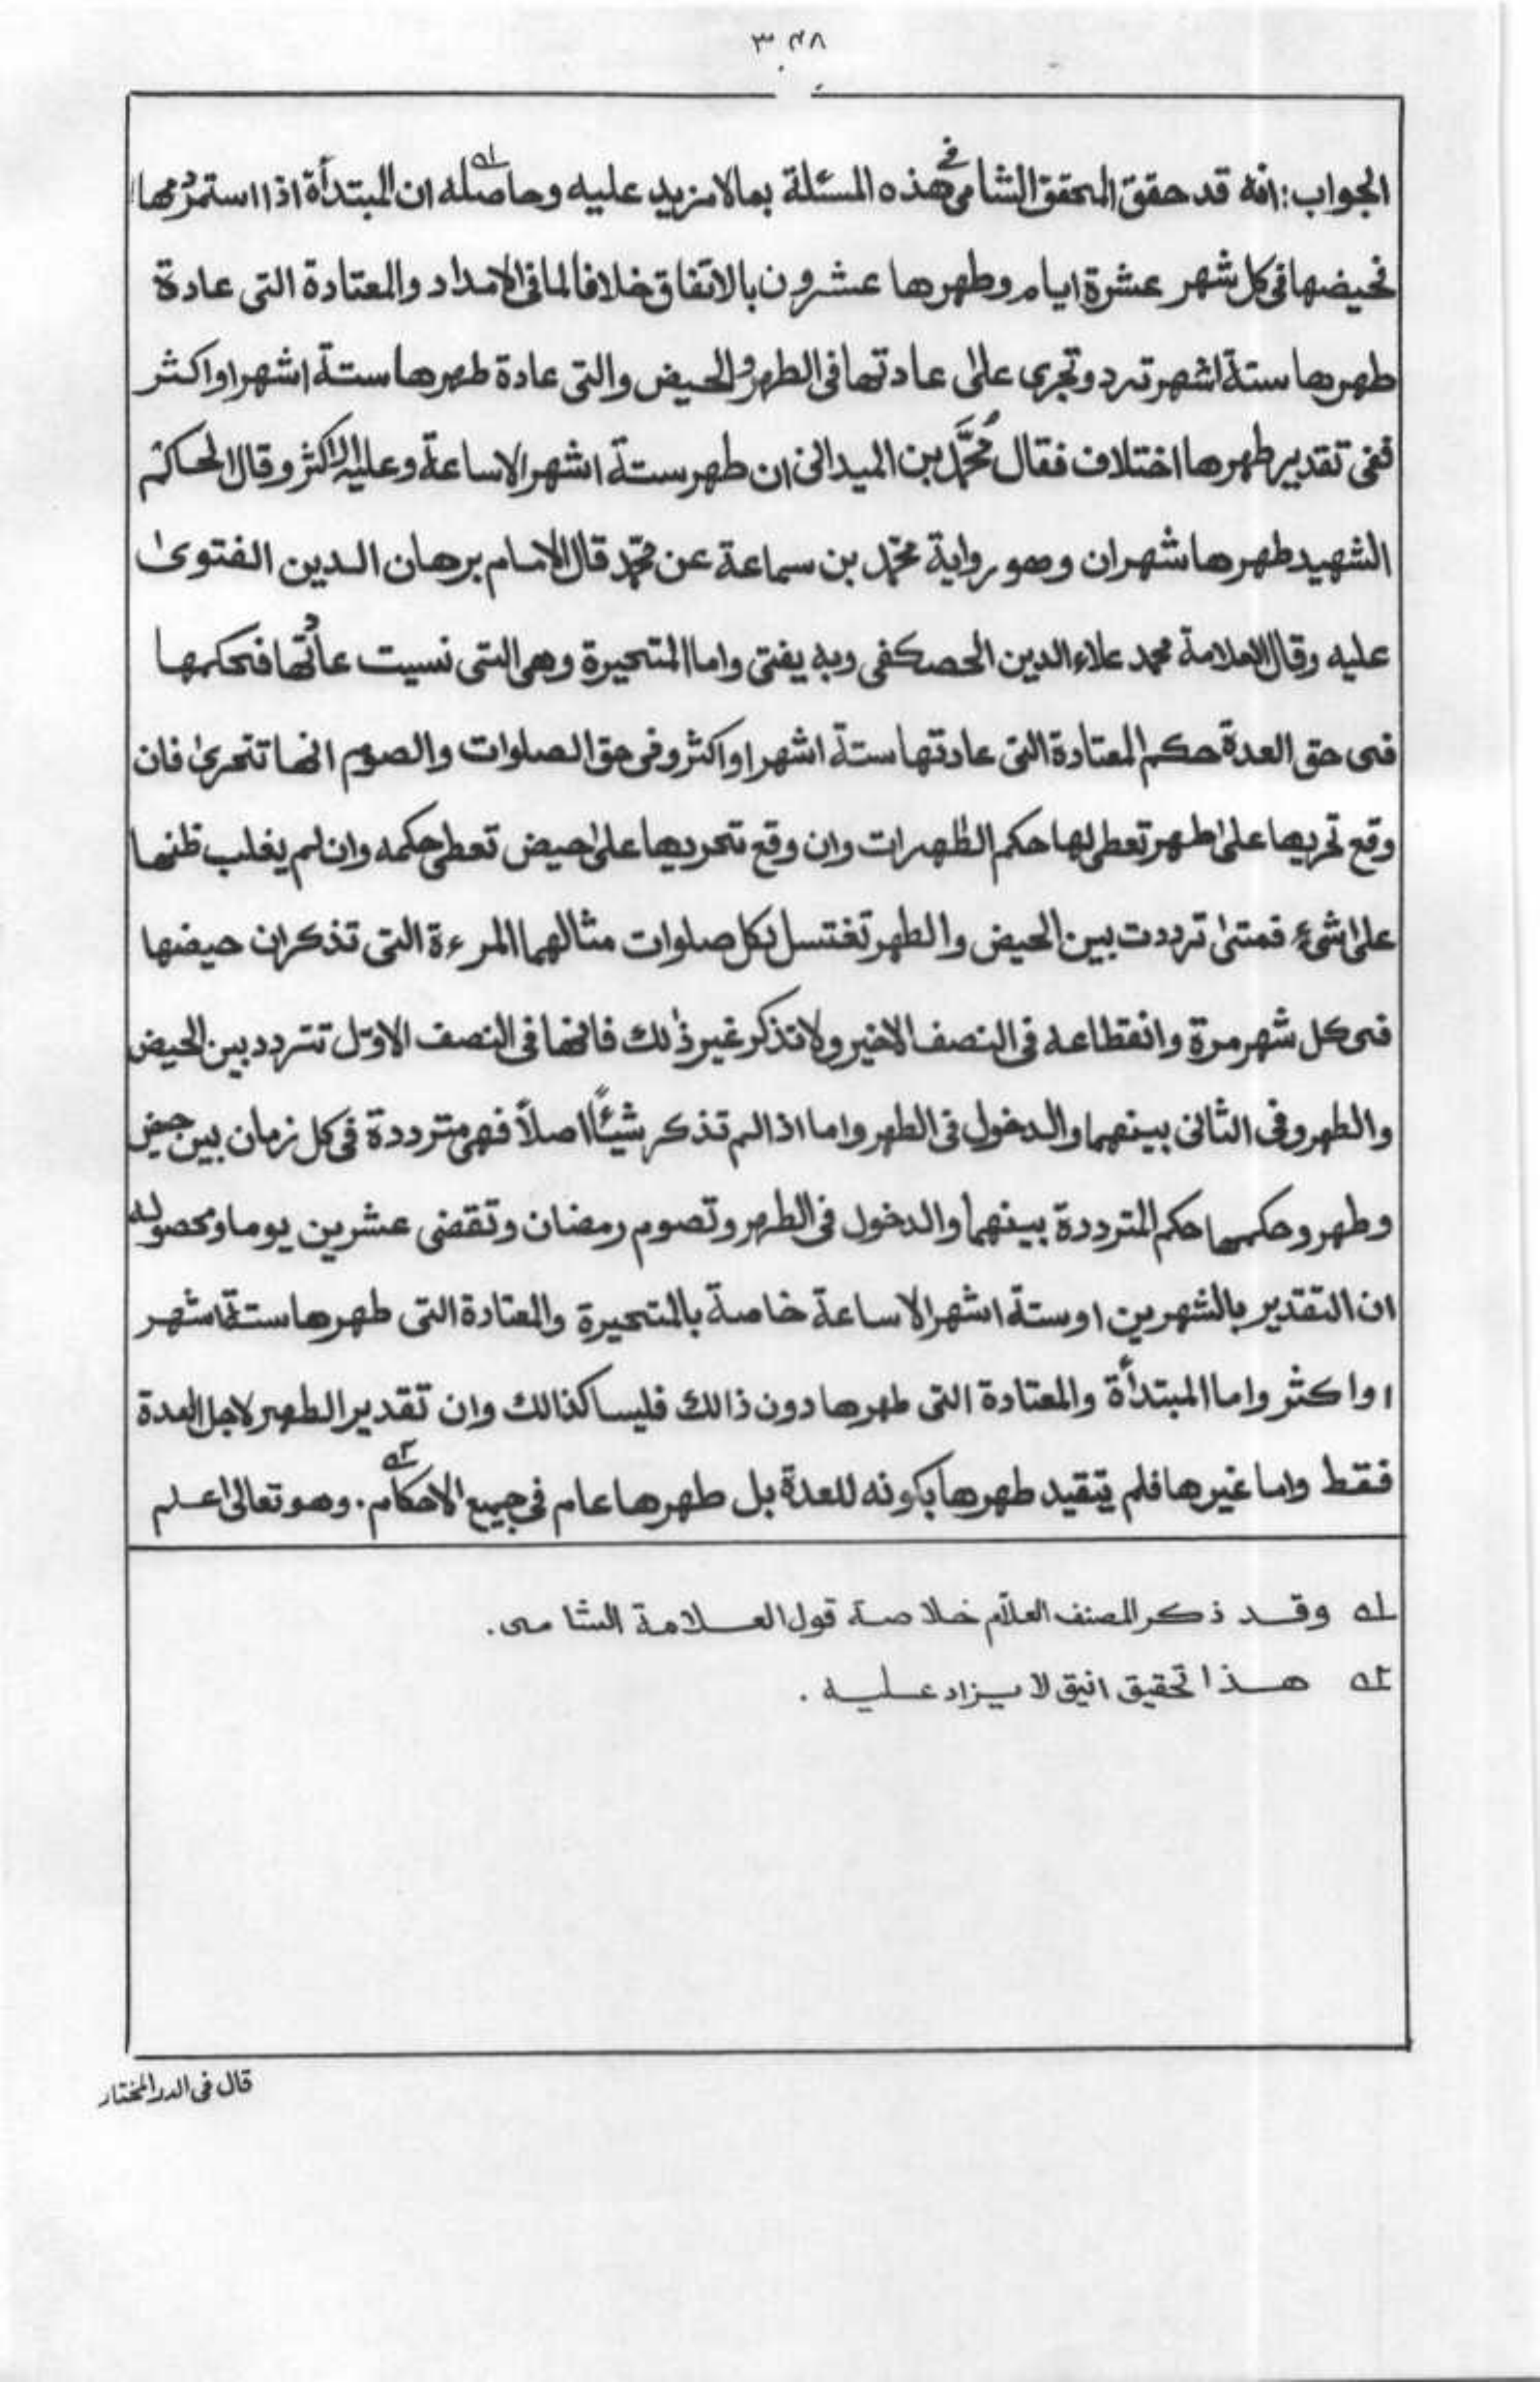 ٣٠٤٨
الجواب: انه قد حقق المحقق الشامى فى هذه المسئلة بما لا مزيد عليه وحاصله ١ه ان المبتدأة اذا استمر دمها
فحيضها فى كل شهر عشرة ايام وطهرها عشرون بالاتفاق خلافا لما فى الامداد والمعتادة التى عادة
طهرها ستة اشهر ترد وتجرى على عادتها فى الطهر والحيض والتى عادة طهرها ستة اشهر او اكثر
ففى تقدير طهرها اختلاف فقال مُحَمَّد بن الميدانى ان طهر ستة اشهر الا ساعة وعليه الاكثر وقال الحاكم
الشهيد طهرها شهران وهو رواية محمّد بن سماعة عن محمّد قال الامام برهان الدين الفتوىٰ
عليه وقال العلامة محمد علاء الدين الحصكفى وبه يفتى واما المتحيرة وهى التى نسيت عادتها فحكمها
فى حق العدة حكم المعتادة التى عادتها ستة اشهر او اكثر وفى حق الصلوات والصوم انها تتحرىٰ فان
وقع تحريها علىٰ طهر تعطى لها حكم الطٰهرات وان وقع تحريها علىٰ حيض تعطى حكمه وان لم يغلب ظنها
علىٰ شىءٍ فمتىٰ ترددت بين الحيض والطهر تغتسل لكل صلوات مثالهما المرءة التى تذكر ان حيضها
فى كل شهر مرة وانقطاعه فى النصف الاخير ولا تذكر غير ذٰلك فانها فى النصف الاوّل تتردد بين الحيض
والطهر وفى الثانى بينهما والدخول فى الطهر واما اذا لم تذكر شيئًا اصلاً فهى مترددة فى كل زمان بين حيض
وطهر وحكمها حكم المترددة بينهما والدخول فى الطهر وتصوم رمضان وتقضى عشرين يوما ومحصوله
ان التقدير بالشهرين او ستة اشهر الا ساعة خاصة بالمتحيرة والمعتادة التى طهرها ستة اشهر
او اكثر واما المبتدأة والمعتادة التى طهرها دون ذالك فليسا كذالك وان تقدير الطهر لاجل العدة
فقط واما غيرها فلم يتقيد طهرها بكونه للعدة بل طهرها عام فى جميع الاحكام ٢ه. وهو تعالىٰ اعلم
١ه وقد ذكر المصنف العلّام خلاصة قول العلامة الشامى.
٢ه هذا تحقيق انيق لا يزاد عليه.
قال فى الدر المختار